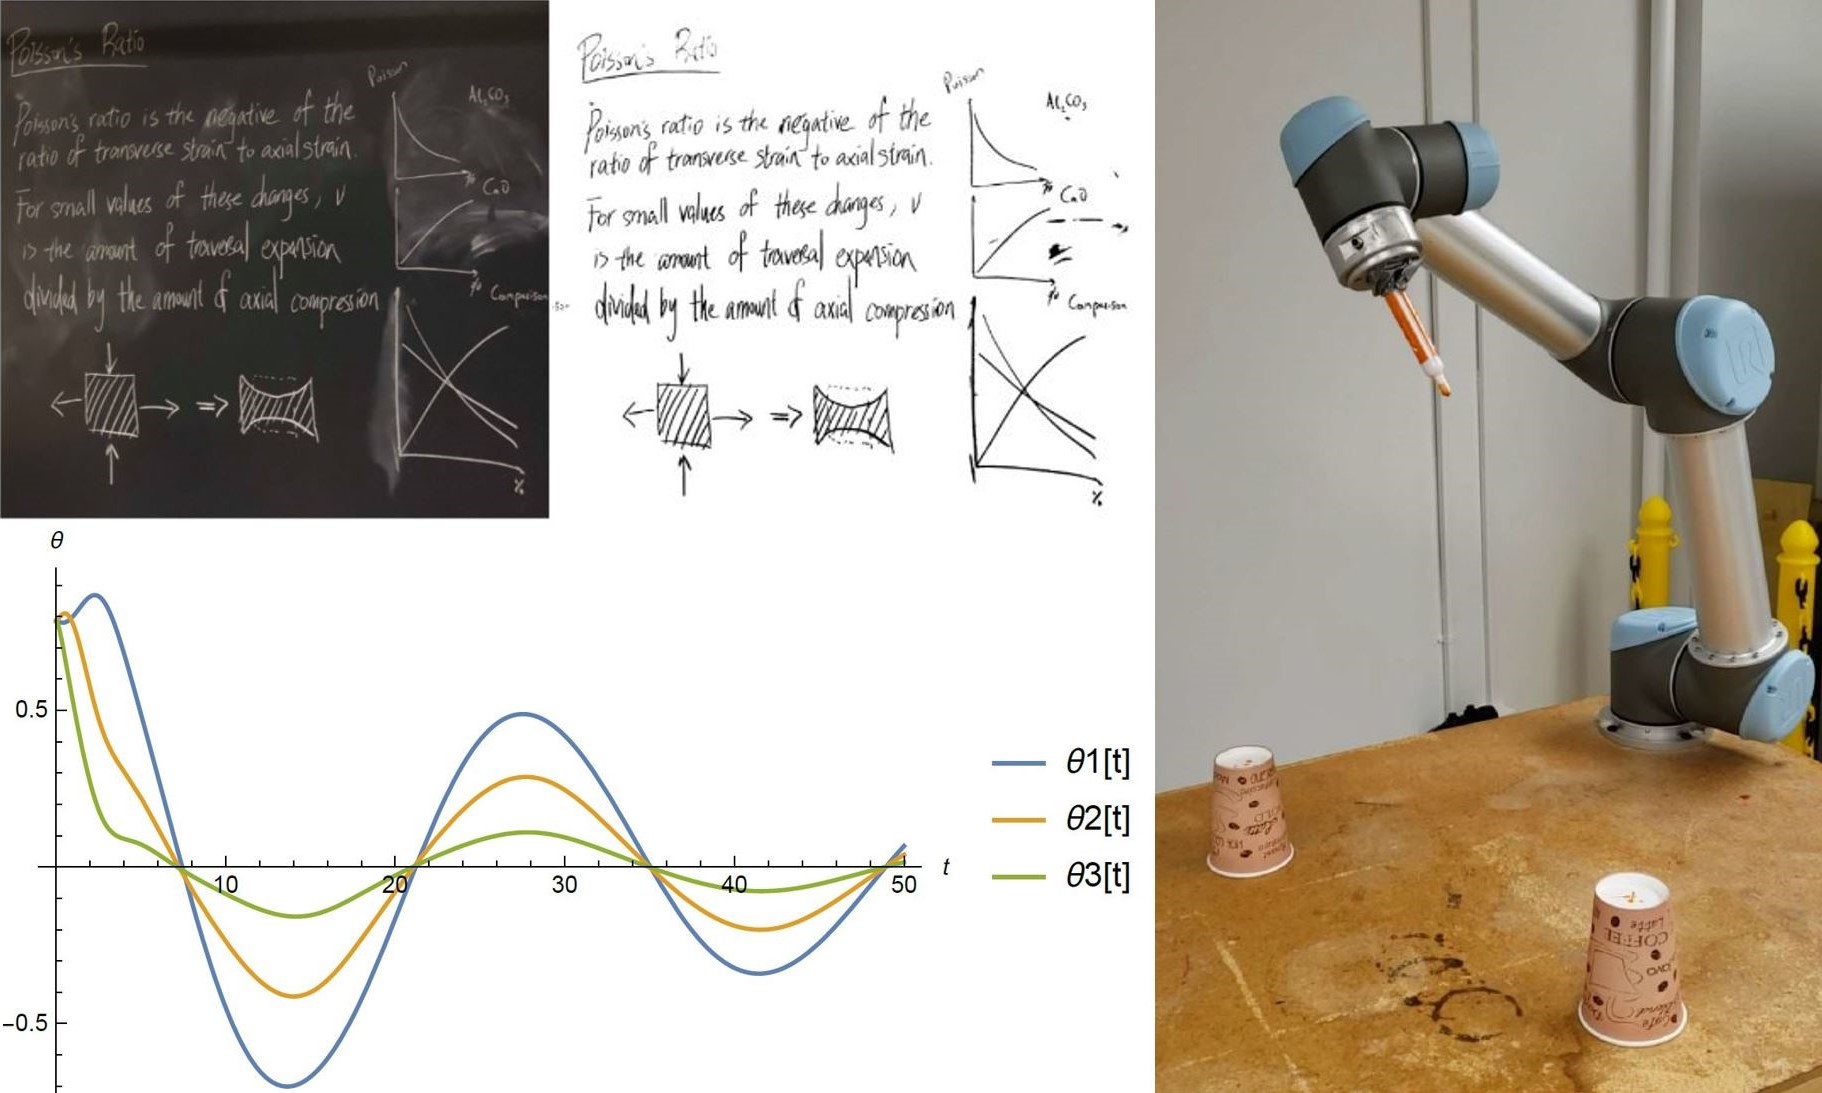 Poisson's Ratio
Poisson's ratio is the negative of the
ratio of transverse strain to axial strain.
For small values of these changes, ν
is the amount of traversal expansion
divided by the amount of axial compression
Poisson
Al₂CO₃
%
CaO
%
Comparison
%
Poisson's Ratio
Poisson's ratio is the negative of the
ratio of transverse strain to axial strain.
For small values of these changes, ν
is the amount of traversal expansion
divided by the amount of axial compression
Poisson
Al₂CO₃
%
CaO
%
Comparison
%
θ
0.5
-0.5
10
20
30
40
50
t
θ1[t]
θ2[t]
θ3[t]
Latte
COFFEE